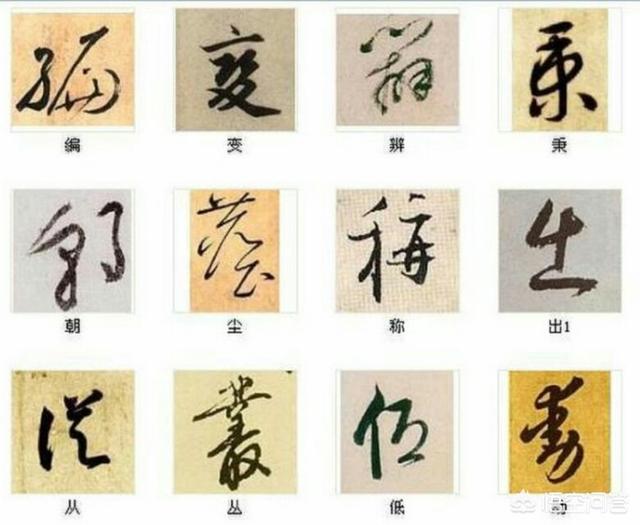 编 变 辨 秉
朝 尘 称 出1
从 丛 低 动
悟空问答